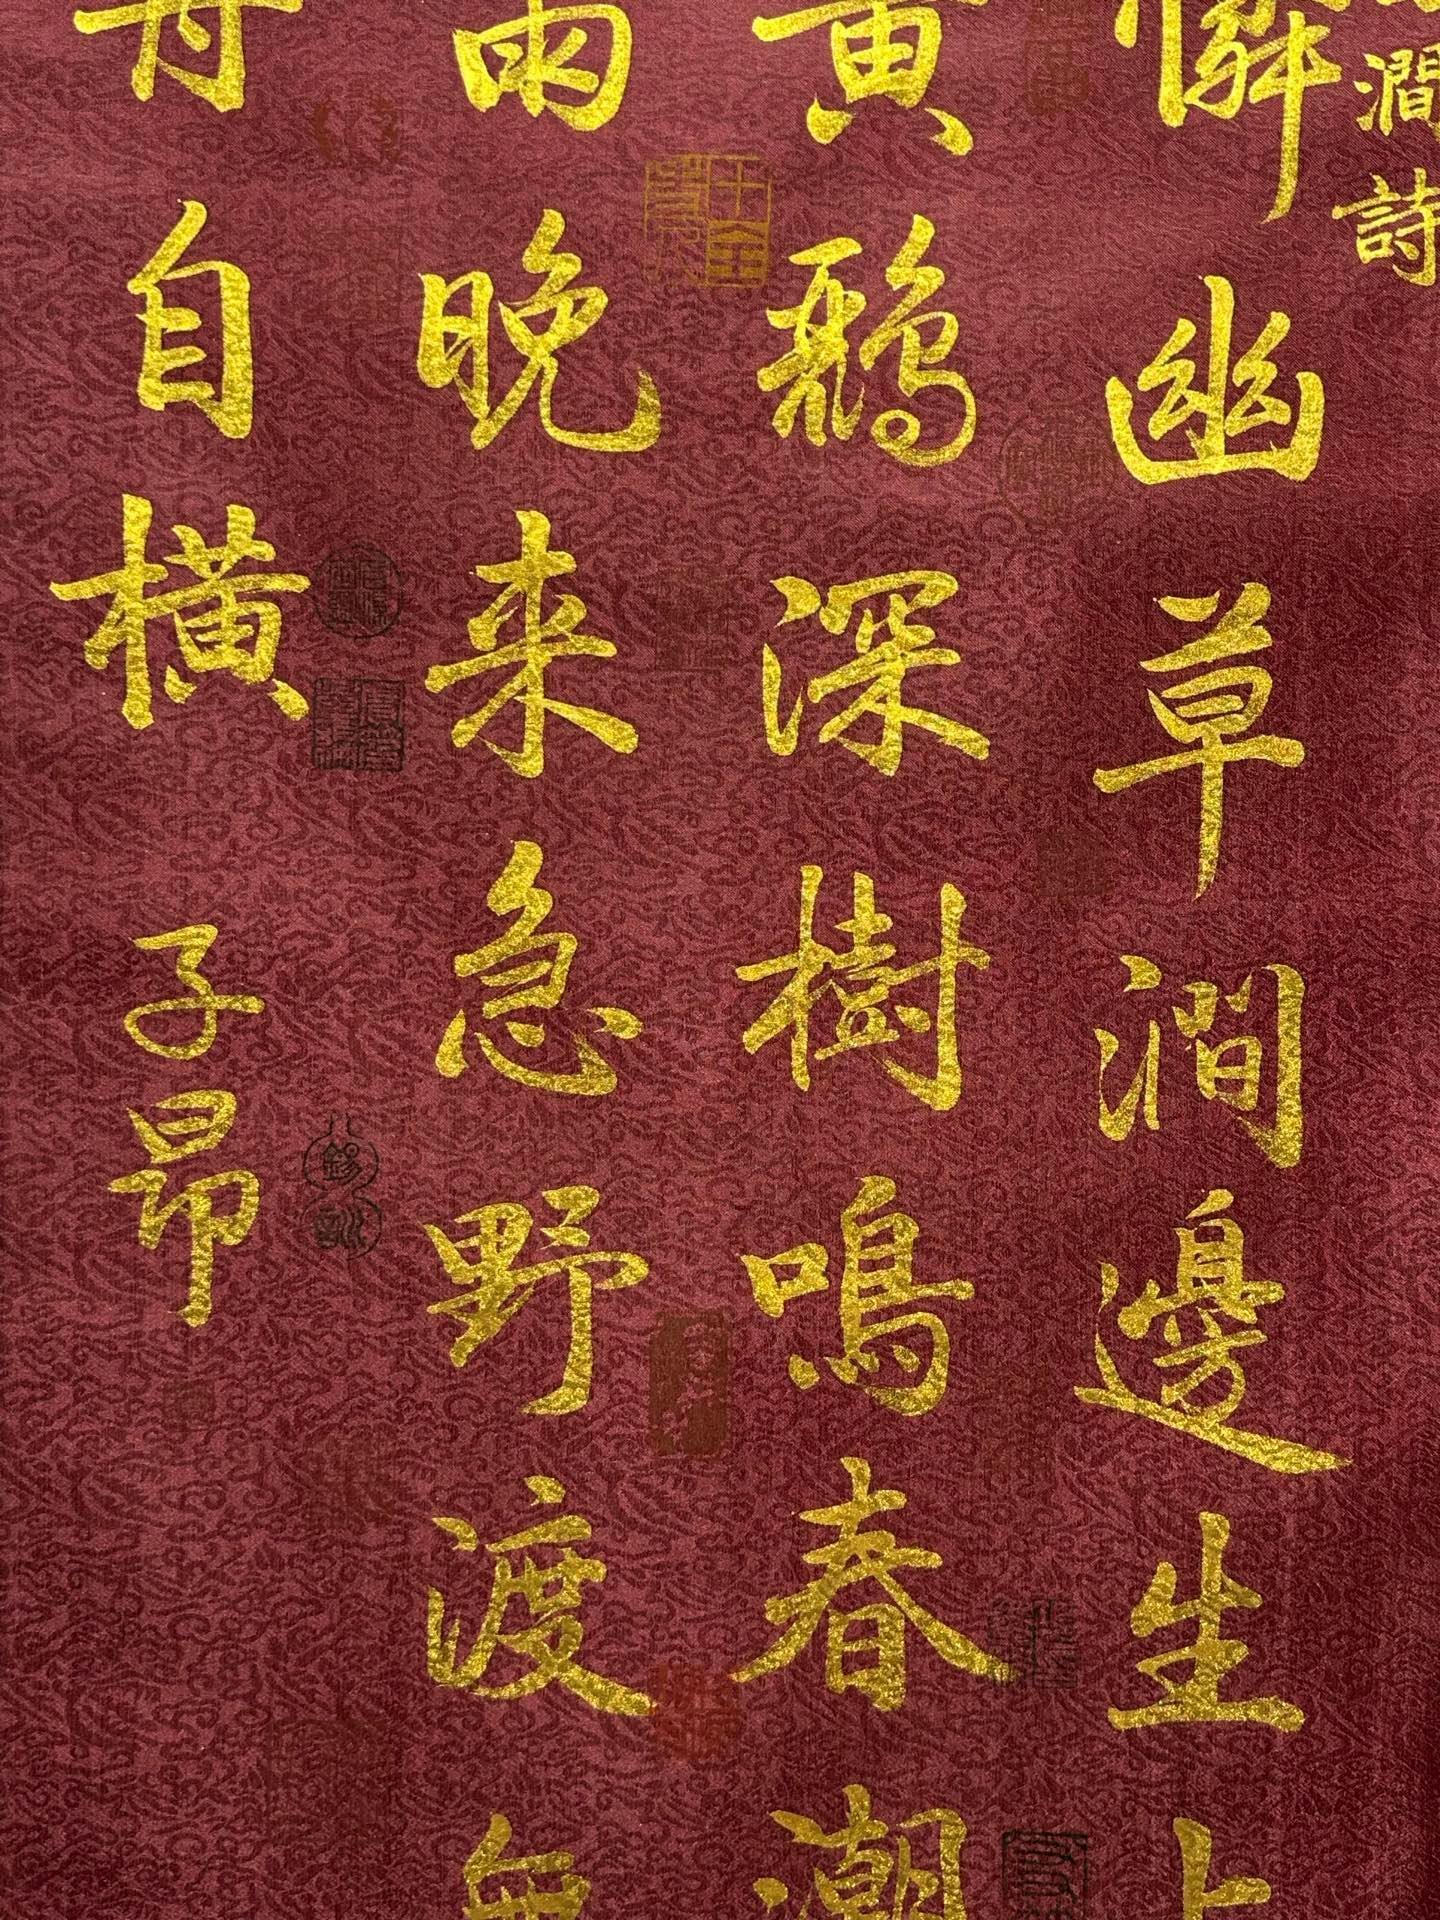 澗詩
憐幽草澗邊生上
黃鸝深樹鳴春潮
雨晚來急野渡無
舟自橫
子昂